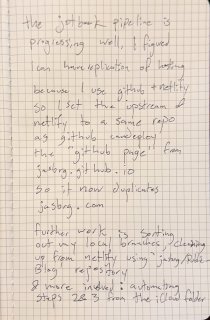 the jotbook pipeline is
progressing well, I figured
I can have replication of hosting
because I use github + netlify
so I set the upstream of
netlify to a same repo
as github can deploy
the "github page" from
jasbrg.github.io
so it now duplicates
jasbrg.com
further work is sorting
out my local branches, cleaning
up from netlify using "jasbrg/
Blog repository
& more involved: automating
steps 2&3 from the iCloud folder